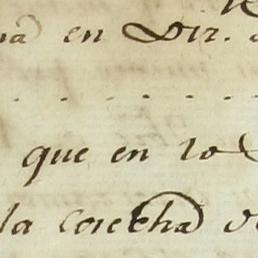 en Dir.
que en lo
la cosecha